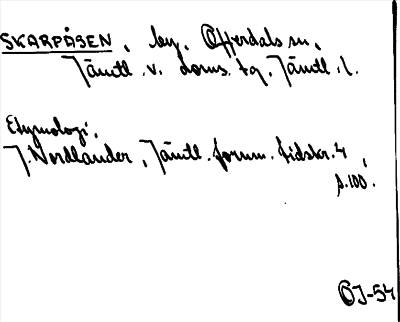 SKARPÅSEN, by, Offerdals sn,
Jämtl. v. doms. tg, Jämtl. l.
Etymologi,
J. Nordlander, Jämtl. fornm. tidskr. 4,
s.100.
ÖJ-54